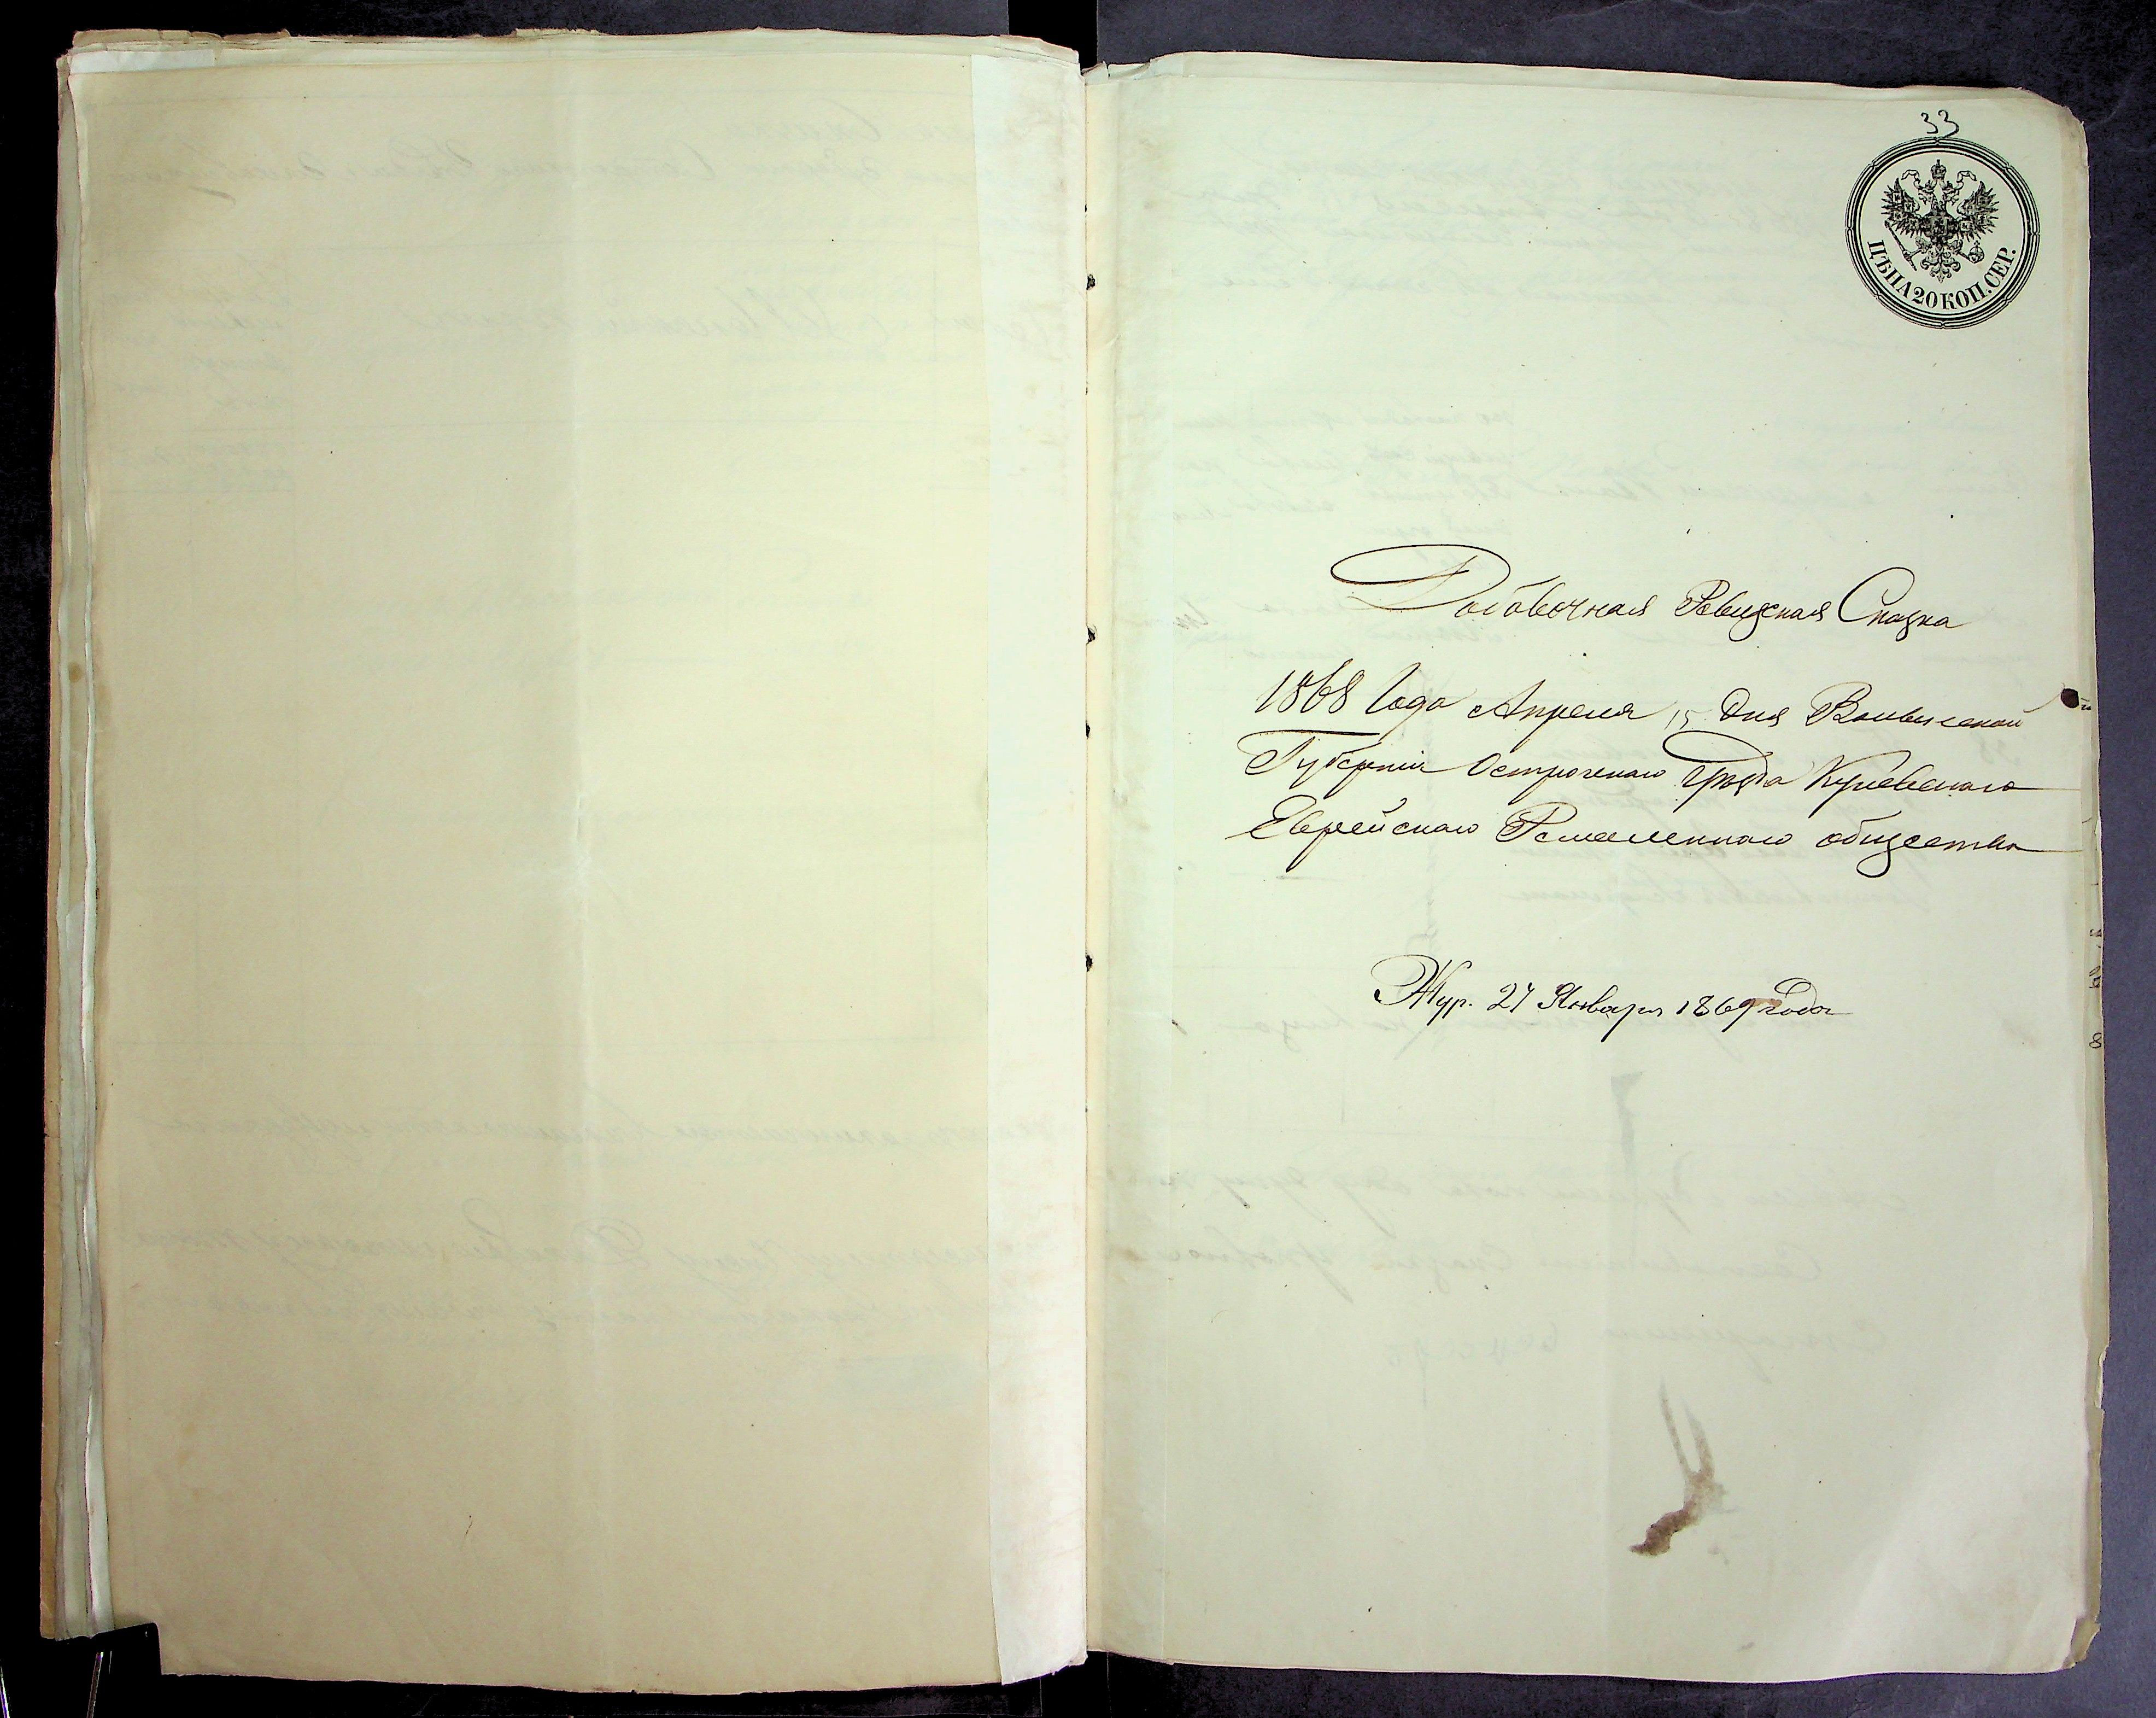 33
ЦѢНА 20 КОП. СЕР.
Добовочная Ревизская Сказка
1868 Года Апреля 15 дня Волынской
Губерніи Острогскаго Уѣзда Куневскаго
Еврейскаго Ремесленнаго общества
Жур. 27 Января 1869 года